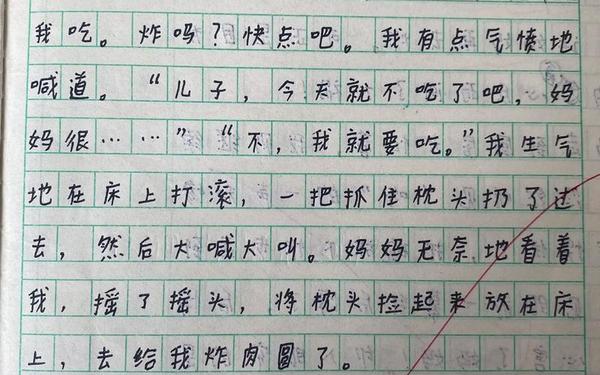 我吃。炸吗？快点吧。我有点气愤地
喊道。“儿子，今天就不吃了吧，妈
妈很……”“不，我就要吃。”我生气
地在床上打滚，一把抓住枕头扔了过
去，然后大喊大叫。妈妈无奈地看着
我，摇了摇头，将枕头捡起来放在床
上，去给我炸肉圆了。